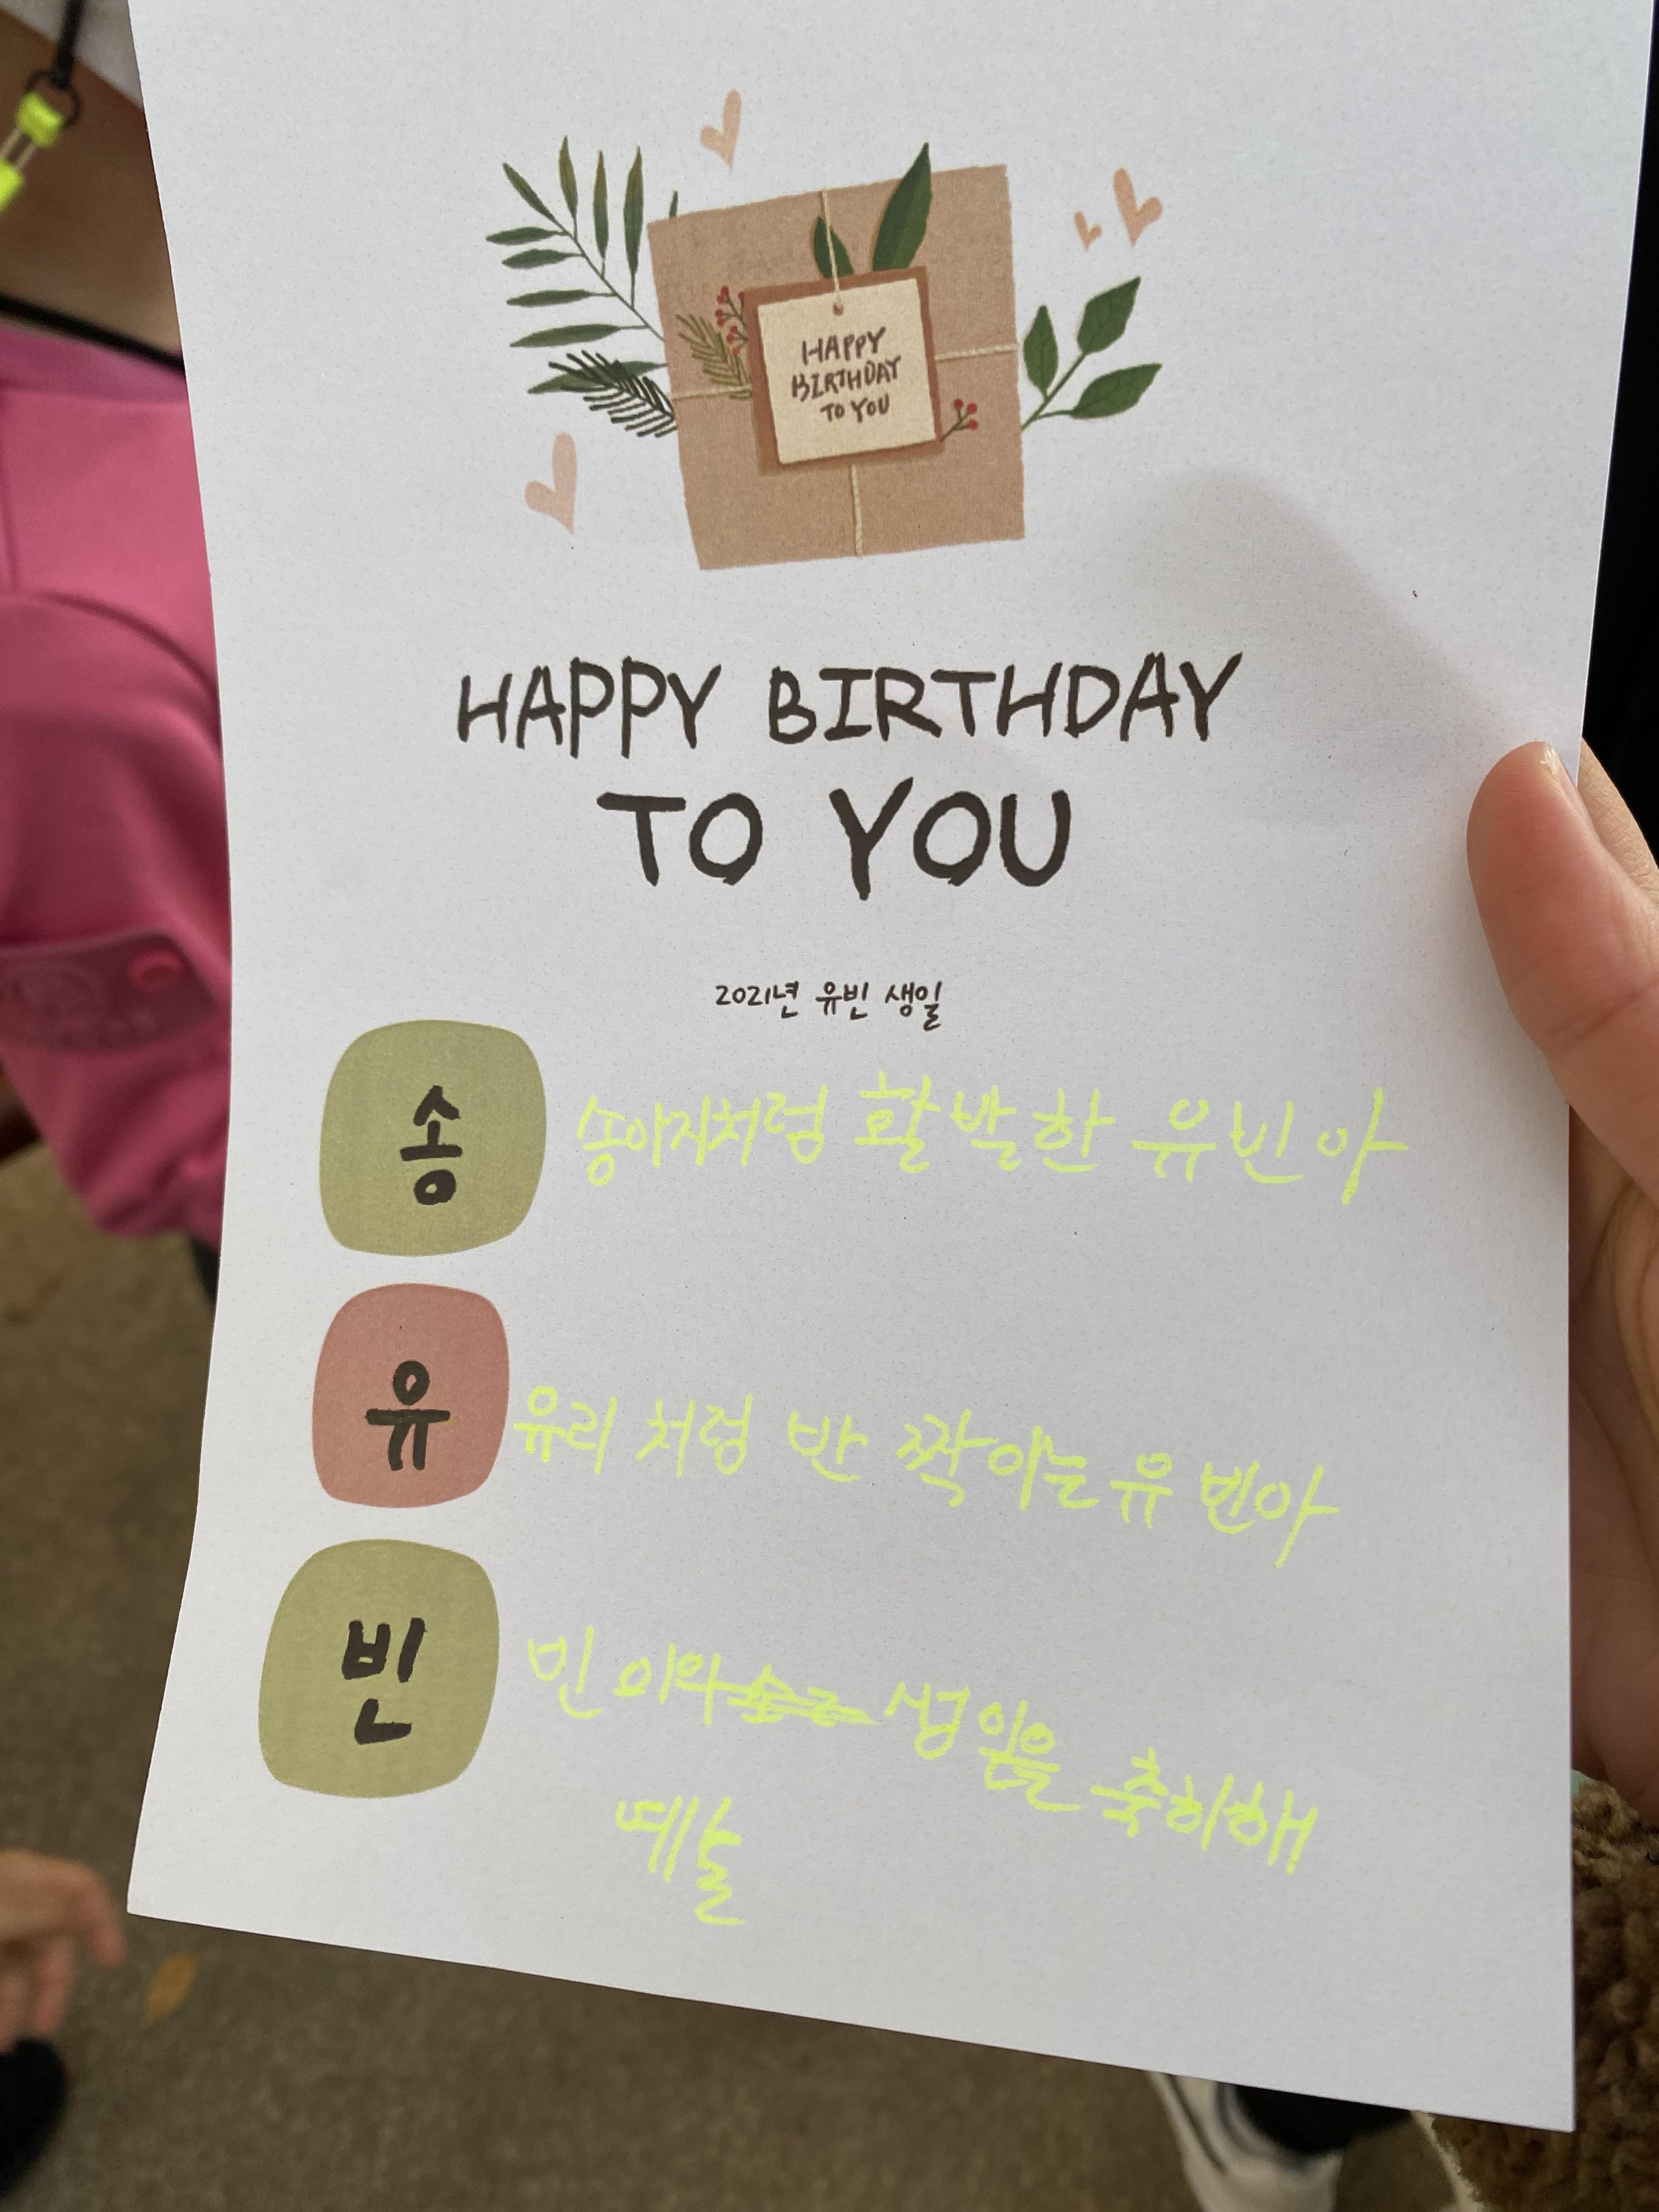 HAPPY
BIRTHDAY
TO YOU
HAPPY BIRTHDAY
TO YOU
2021년 유빈 생일
송
송아지처럼 활발한 유빈아
유
유리 처럼 반 짝이는 유 빈아
빈
빈 이와 생일을 축하해